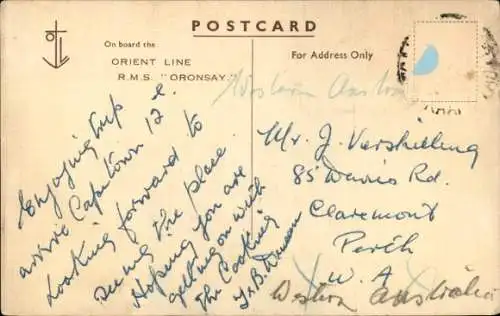 POSTCARD
On board the
ORIENT LINE
R.M.S. "ORONSAY."
For Address Only
Western Aus
Enjoying trip
arrive Capetown 12
Looking forward to
seeing the place.
Hoping you are
getting on with
the Cooking
Mr. J. Verschilling
85 Davis Rd.
Claremont
Perth
W. A
Western Australia